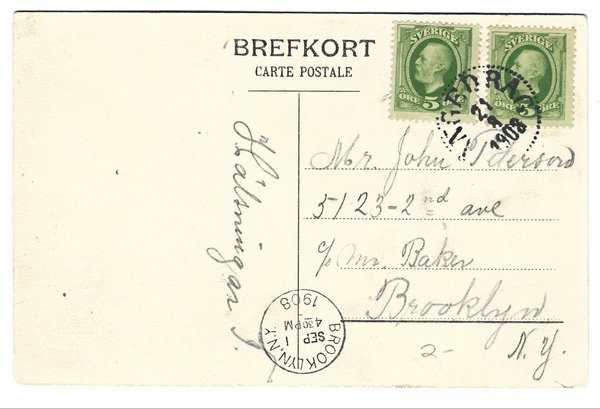 BREFKORT
CARTE POSTALE
SVERIGE
5 ÖRE
SVERIGE
ÖRE 5
21
8
1908
Hälsningar
Mr. John Pederson
5123-2nd ave
c/o Mr. Baker
Brooklyn
2- N.Y.
BROOKLYN, N.Y.
SEP
1
4 30 PM
1908